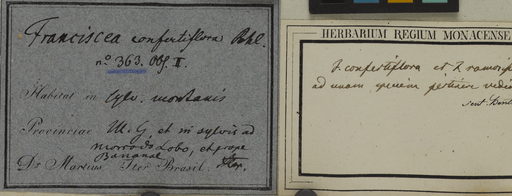 Franciscea confertiflora Pohl.
nº 363. Obs. II.
Habitat in sylv. montanis
Provinciae M. G. et in sylvis ad
morro do Lobo, et prope
Bananal
Dr. Martius Iter Brasil.
HERBARIUM REGIUM MONACENSE
F. confertiflora et F. ramosi
ad unam speciem pertinere
sent. Benth